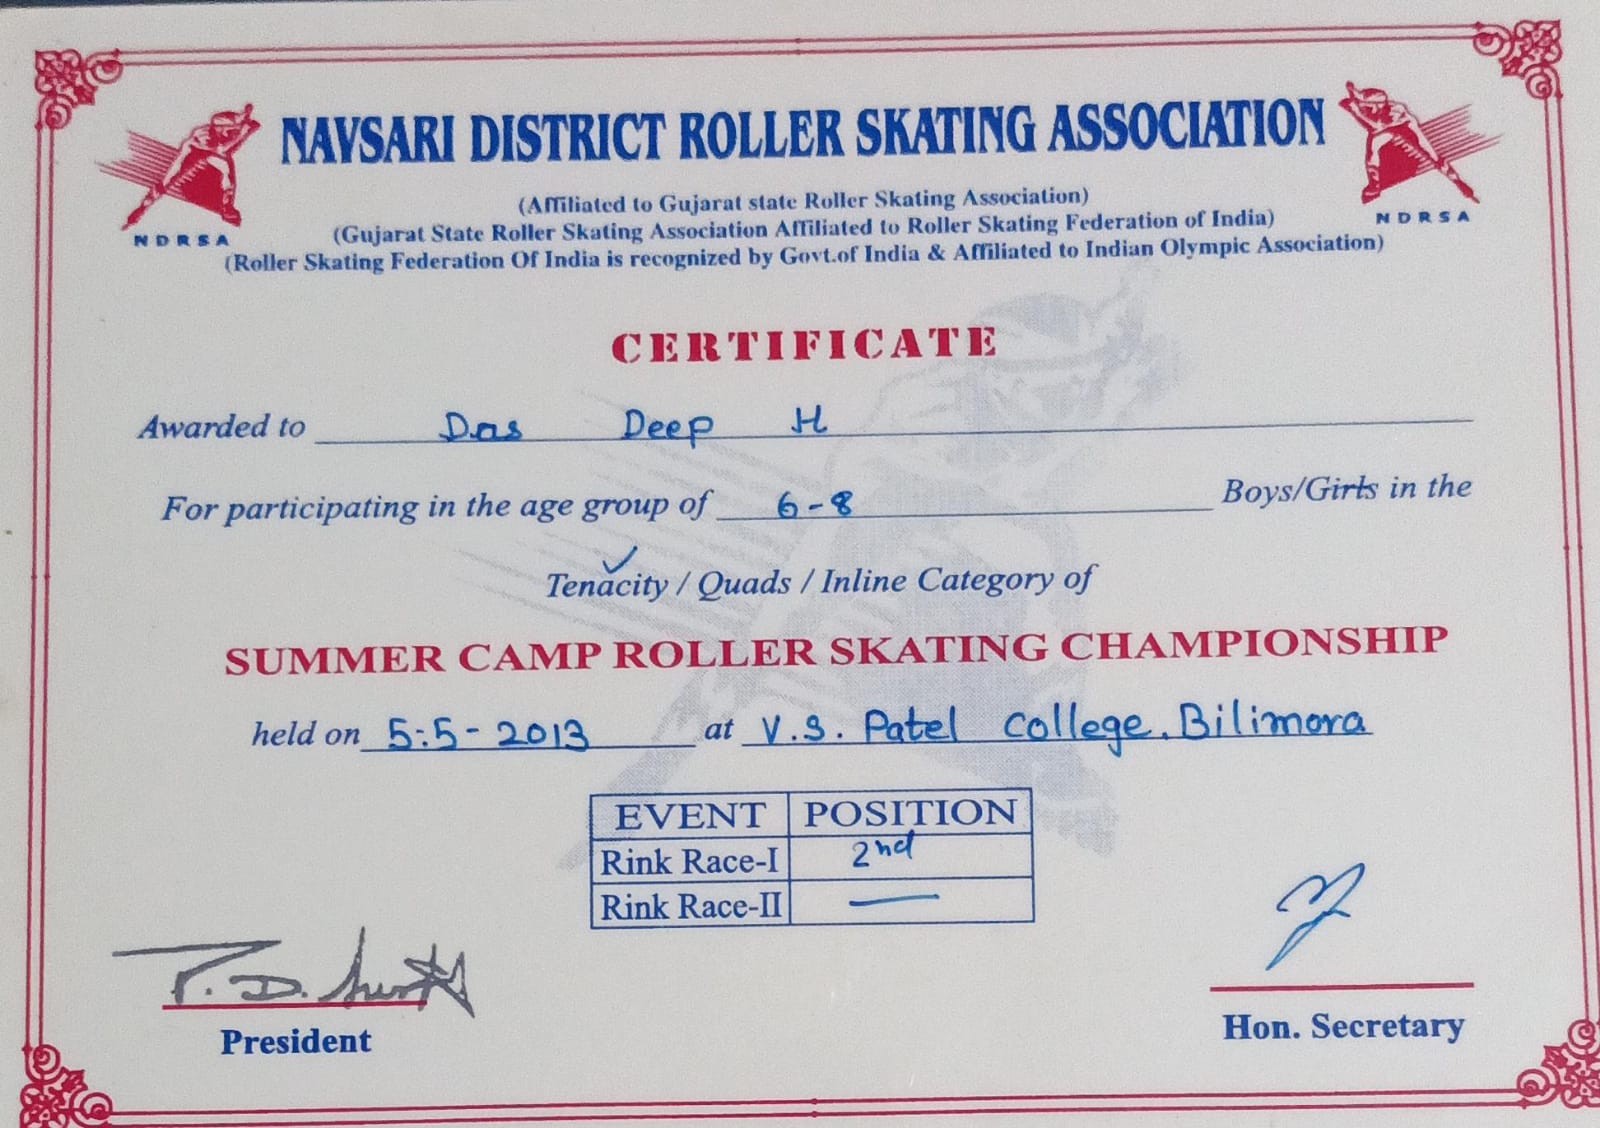 NAVSARI DISTRICT ROLLER SKATING ASSOCIATION
(Affiliated to Gujarat state Roller Skating Association)
(Gujarat State Roller Skating Association Affiliated to Roller Skating Federation of India)
(Roller Skating Federation Of India is recognized by Govt.of India & Affiliated to Indian Olympic Association)
NDRSA
NDRSA
CERTIFICATE
Awarded to Das Deep H
For participating in the age group of 6-8 Boys/Girls in the
Tenacity / Quads / Inline Category of
SUMMER CAMP ROLLER SKATING CHAMPIONSHIP
held on 5:5-2013 at V.S. Patel College, Bilimora
EVENT POSITION
Rink Race-I 2nd
Rink Race-II —
P.D.
President
Hon. Secretary